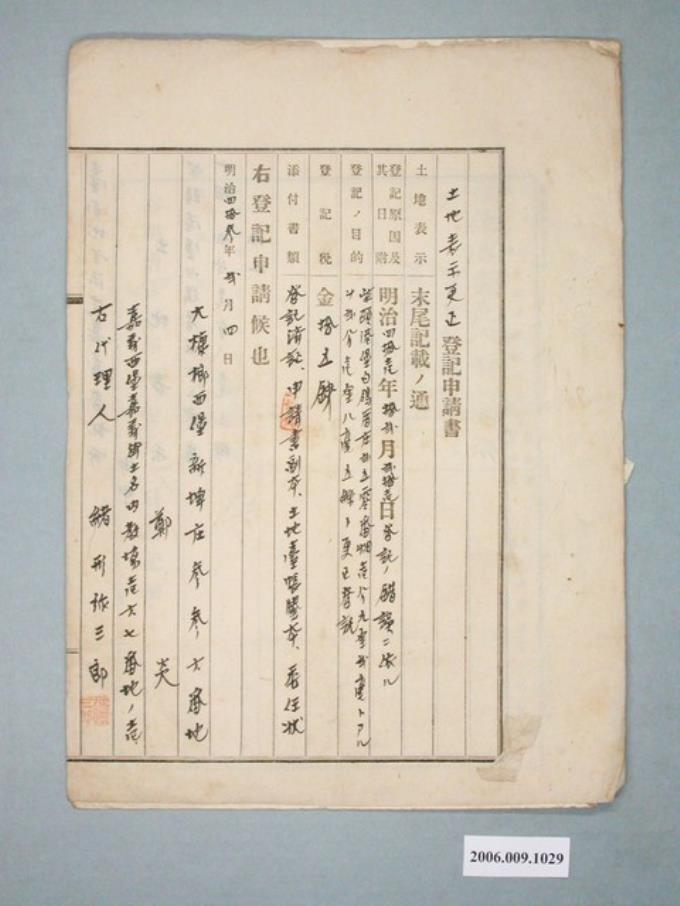 土地表示更正登記申請書
土地表示 末尾記載ノ通
登記原因及其日附 明治四拾壱年拾弐月弐拾壱日登記ノ錯誤ニ依ル
登記ノ目的
更正登記
登記税 金拾五錢
添付書類 登記済証、申請書副本、土地臺帳謄本、委任状
右登記申請候也
明治四拾參年弐月四日
大槺榔西堡新埤庄參參六番地
鄭 炎
嘉義西堡嘉義街土名内教場壱六七番地ノ壱
右代理人 緒形弥三郎
2006.009.1029